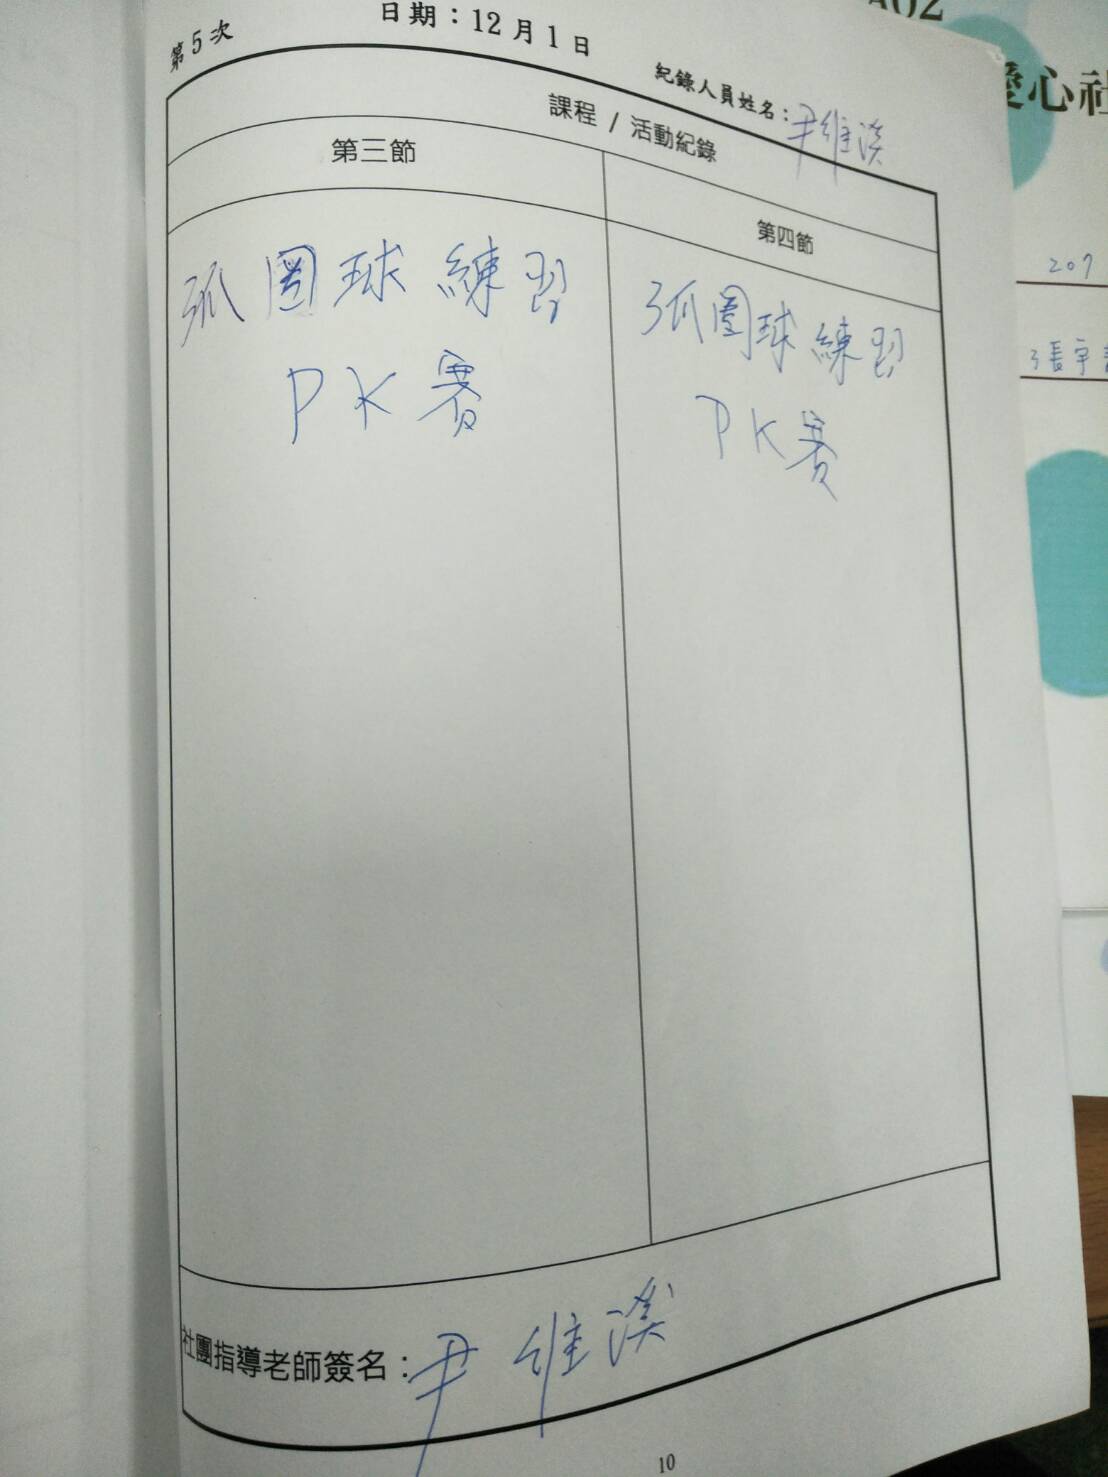 第5次
日期：12月1日
紀錄人員姓名：尹維溪
課程 / 活動紀錄
第三節
第四節
弧圈球練習
PK賽
弧圈球練習
PK賽
社團指導老師簽名：尹維溪
10
A02
愛心社
207
張宇